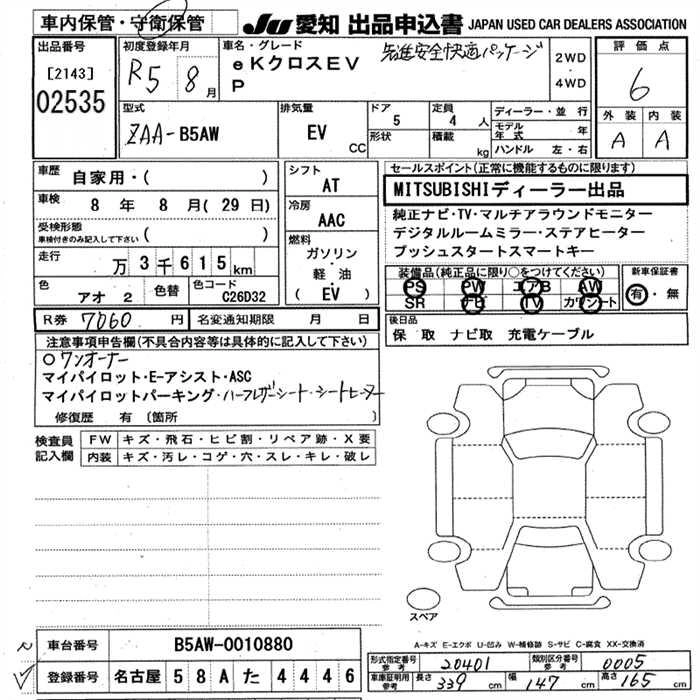 車内保管・守衛保管
JU 愛知 出品申込書 JAPAN USED CAR DEALERS ASSOCIATION
出品番号
[2143]
02535
初度登録年月
R5 8月
車名・グレード
eKクロスEV
P
先進安全快適パッケージ
2WD
・
4WD
評価点
6
外装 内装
A A
型式
ZAA-B5AW
排気量
EV
CC
ドア
5
形状
定員
4人
積載
kg
ディーラー・並行
モデル年式 年
ハンドル 左・右
車歴
自家用・( )
車検
8年 8月(29日)
受検形態
車検付きのみ記入して下さい ( )
走行
万3千615km
色
アオ 2
色替
色コード
C26D32
シフト
AT
冷房
AAC
燃料
ガソリン
・
軽・油
( EV )
セールスポイント(正常に機能するものに限ります)
MITSUBISHIディーラー出品
純正ナビ・TV・マルチアラウンドモニター
デジタルルームミラー・ステアヒーター
プッシュスタートスマートキー
装備品(純正品に限り○をつけてください)
PS PW エアB AW
SR ナビ TV カワシート
新車保証書
有・無
R券 7060円
名変通知期限 月 日
後日品
保 取 ナビ取 充電ケーブル
注意事項申告欄(不具合内容等は具体的に記入して下さい)
○ワンオーナー
マイパイロット・E-アシスト・ASC
マイパイロットパーキング・ハーフレザーシート・シートヒーター
修復歴 有(箇所 )
検査員
記入欄
FW キズ・飛石・ヒビ割・リペア跡・X要
内装 キズ・汚レ・コゲ・穴・スレ・キレ・破レ
スペア
A-キズ E-エクボ U-凹み W-補修跡 S-サビ C-腐食 XX-交換済
車台番号 B5AW-0010880
登録番号 名古屋 58A た 4446
形式指定番号
参考
20401
類別区分番号
参考
0005
車庫証明用
参考
長さ 339cm 幅 147cm 高さ 165cm